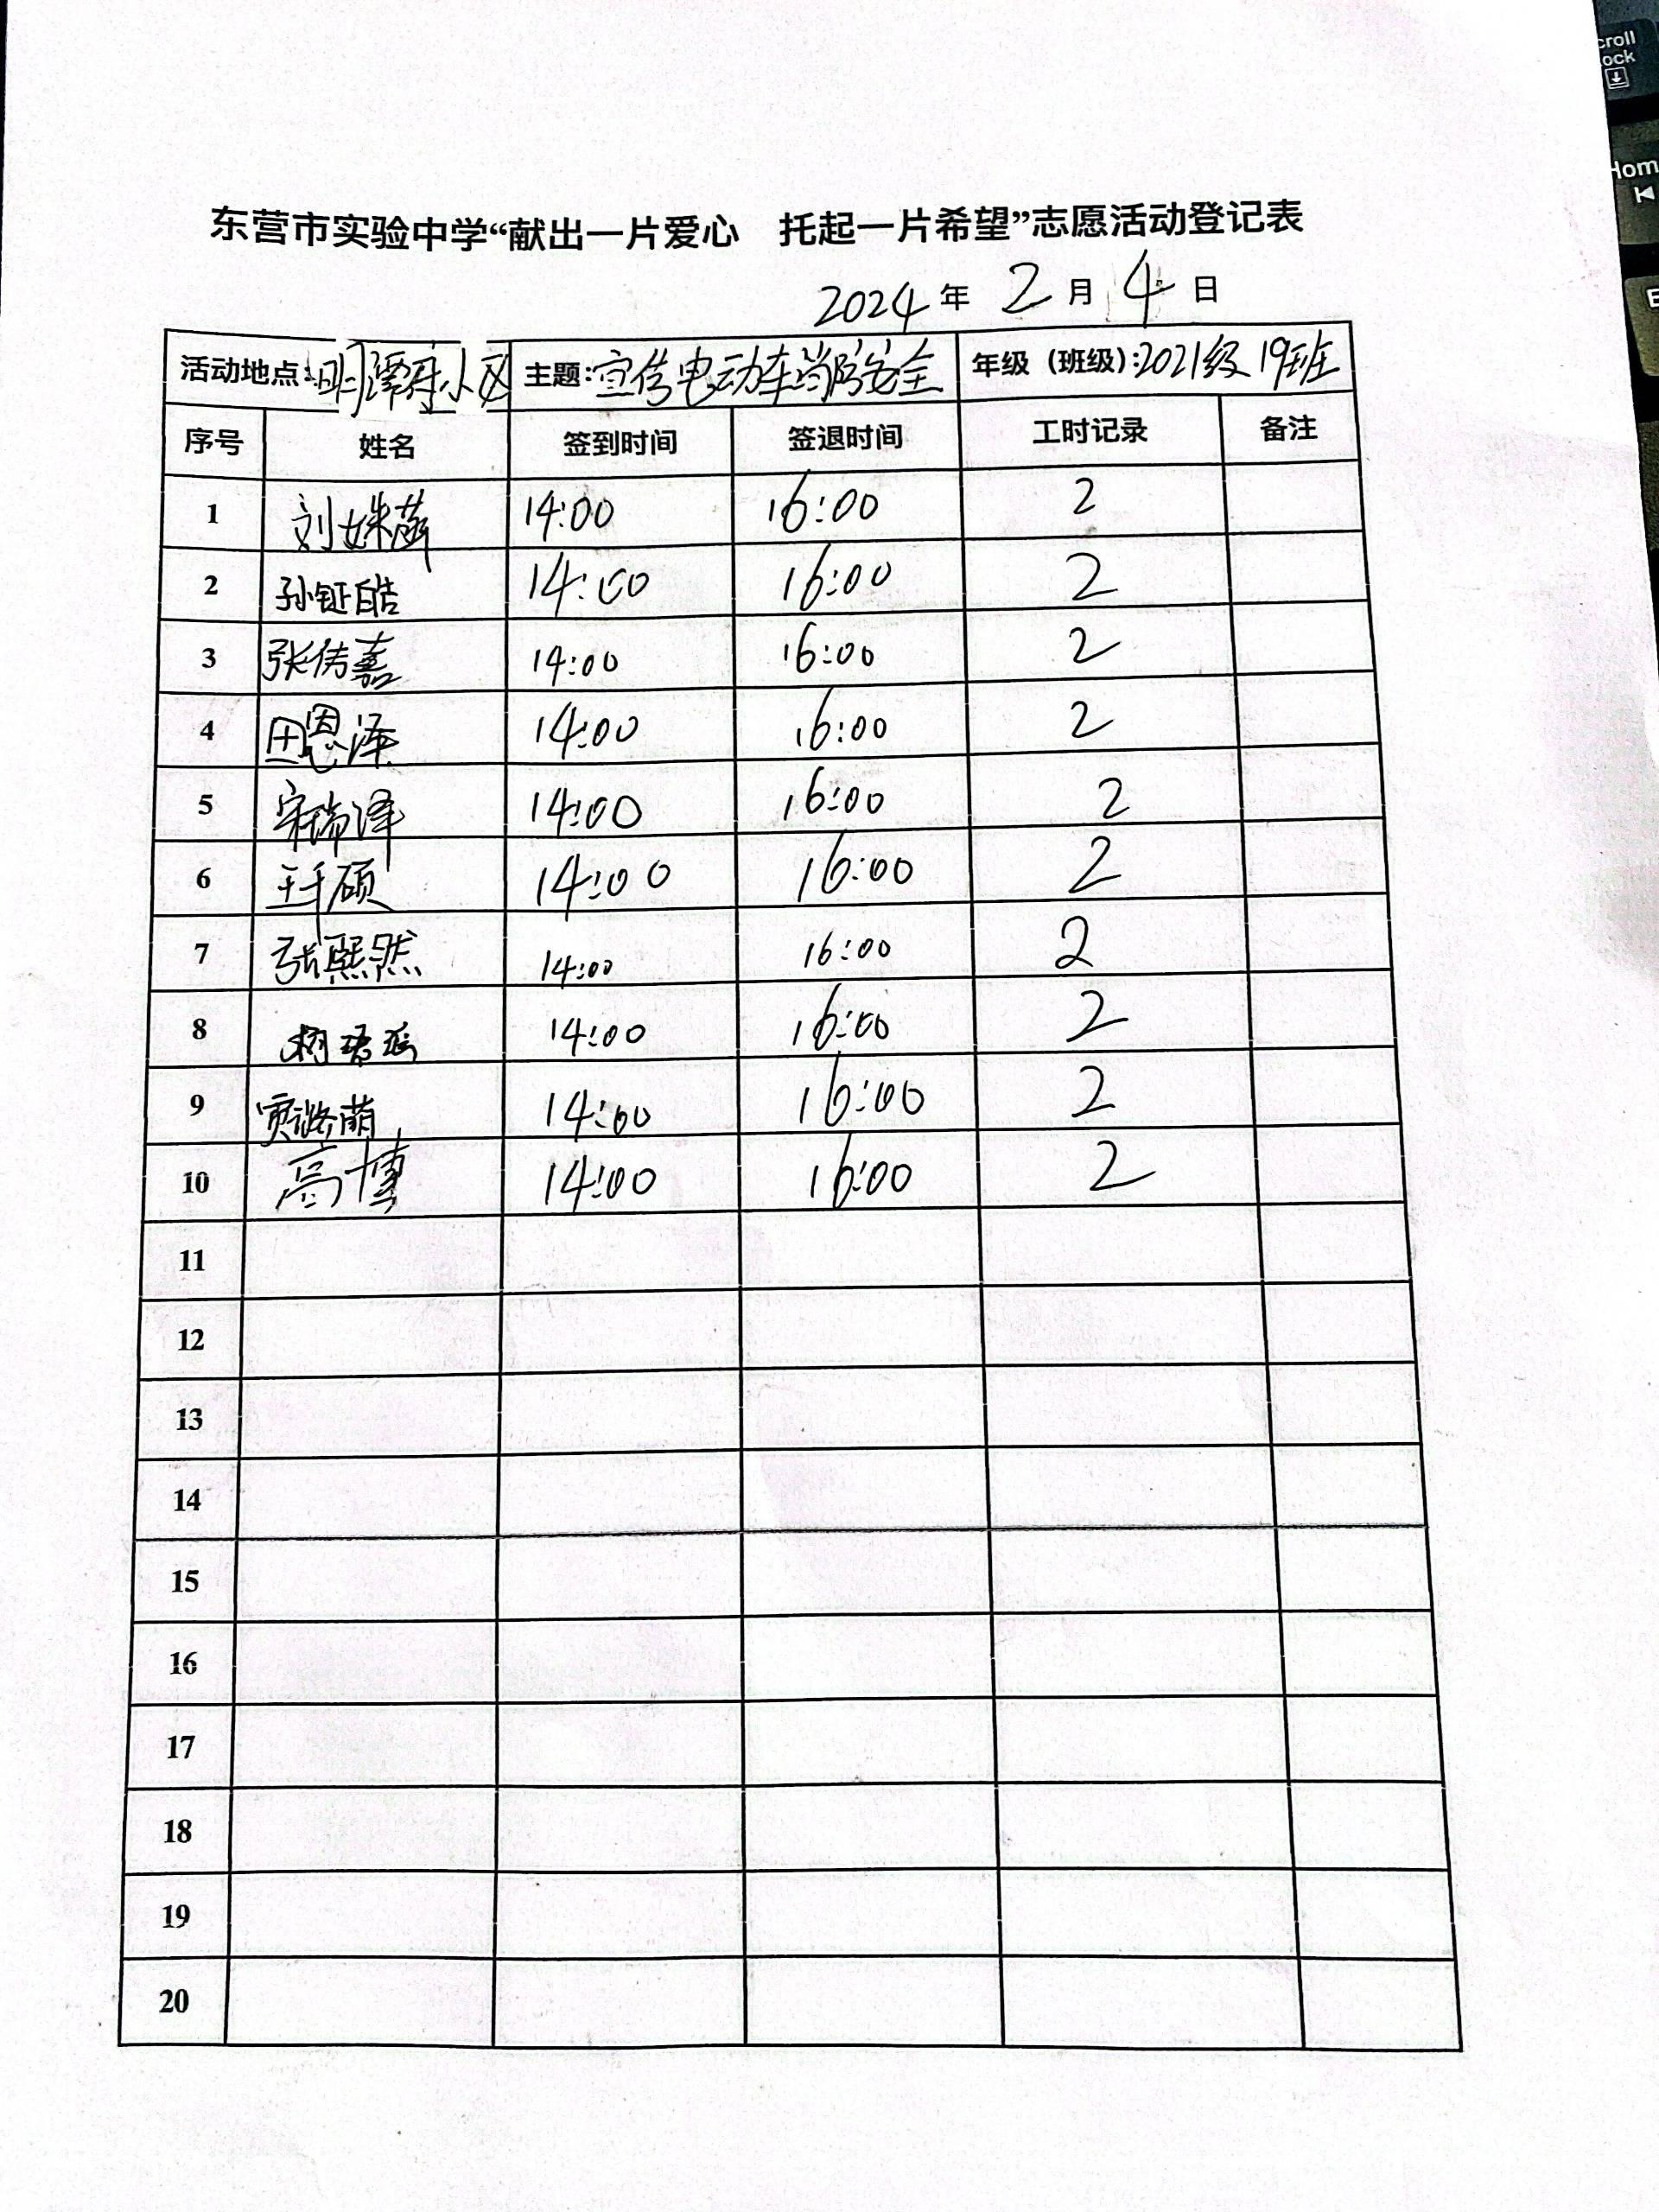 东营市实验中学“献出一片爱心 托起一片希望”志愿活动登记表
2024年 2月 4日
活动地点:明潭府小区 主题:宣传电动车消防安全 年级（班级）:2021级19班
序号 姓名 签到时间 签退时间 工时记录 备注
1 刘姝 14:00 16:00 2
2 孙钲皓 14:00 16:00 2
3 张传嘉 14:00 16:00 2
4 田恩泽 14:00 16:00 2
5 宋瑞泽 14:00 16:00 2
6 王千硕 14:00 16:00 2
7 张熙然 14:00 16:00 2
8 14:00 16:00 2
9 14:00 16:00 2
10 高博 14:00 16:00 2
11
12
13
14
15
16
17
18
19
20
croll
ock
Hom